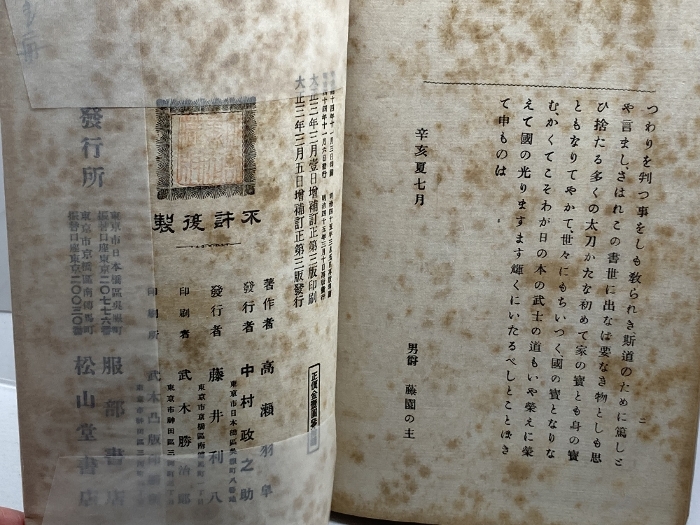 つわりを判つ事をしも敎られき斯道のために篤しと
や言ましさはれこの書世に出なは要なき物としも思
ひ捨たる多くの太刀かたな初めて家の寶とも身の寶
ともなりてやかて世々にもちいつく國の寶となりな
むかくてこそわが日の本の武士の道もいや榮えに榮
えて國の光りますます輝くにいたるべしとことほき
て申ものは
辛亥夏七月
男爵 藤園の主
二
大正三年三月壹日增補訂正第三版印刷
大正三年三月五日增補訂正第三版發行
不許復製
著作者 高瀨羽皐
發行者 中村政之助
東京市日本橋區吳服町八番地
發行者 藤井利八
印刷者 武木勝治郎
印刷所 武木凸版印刷
發行所
東京市日本橋區吳服町
振替口座東京二〇七七六番
服部書店
東京市京橋區南傳馬町
振替口座東京二〇〇三〇番
松山堂書店